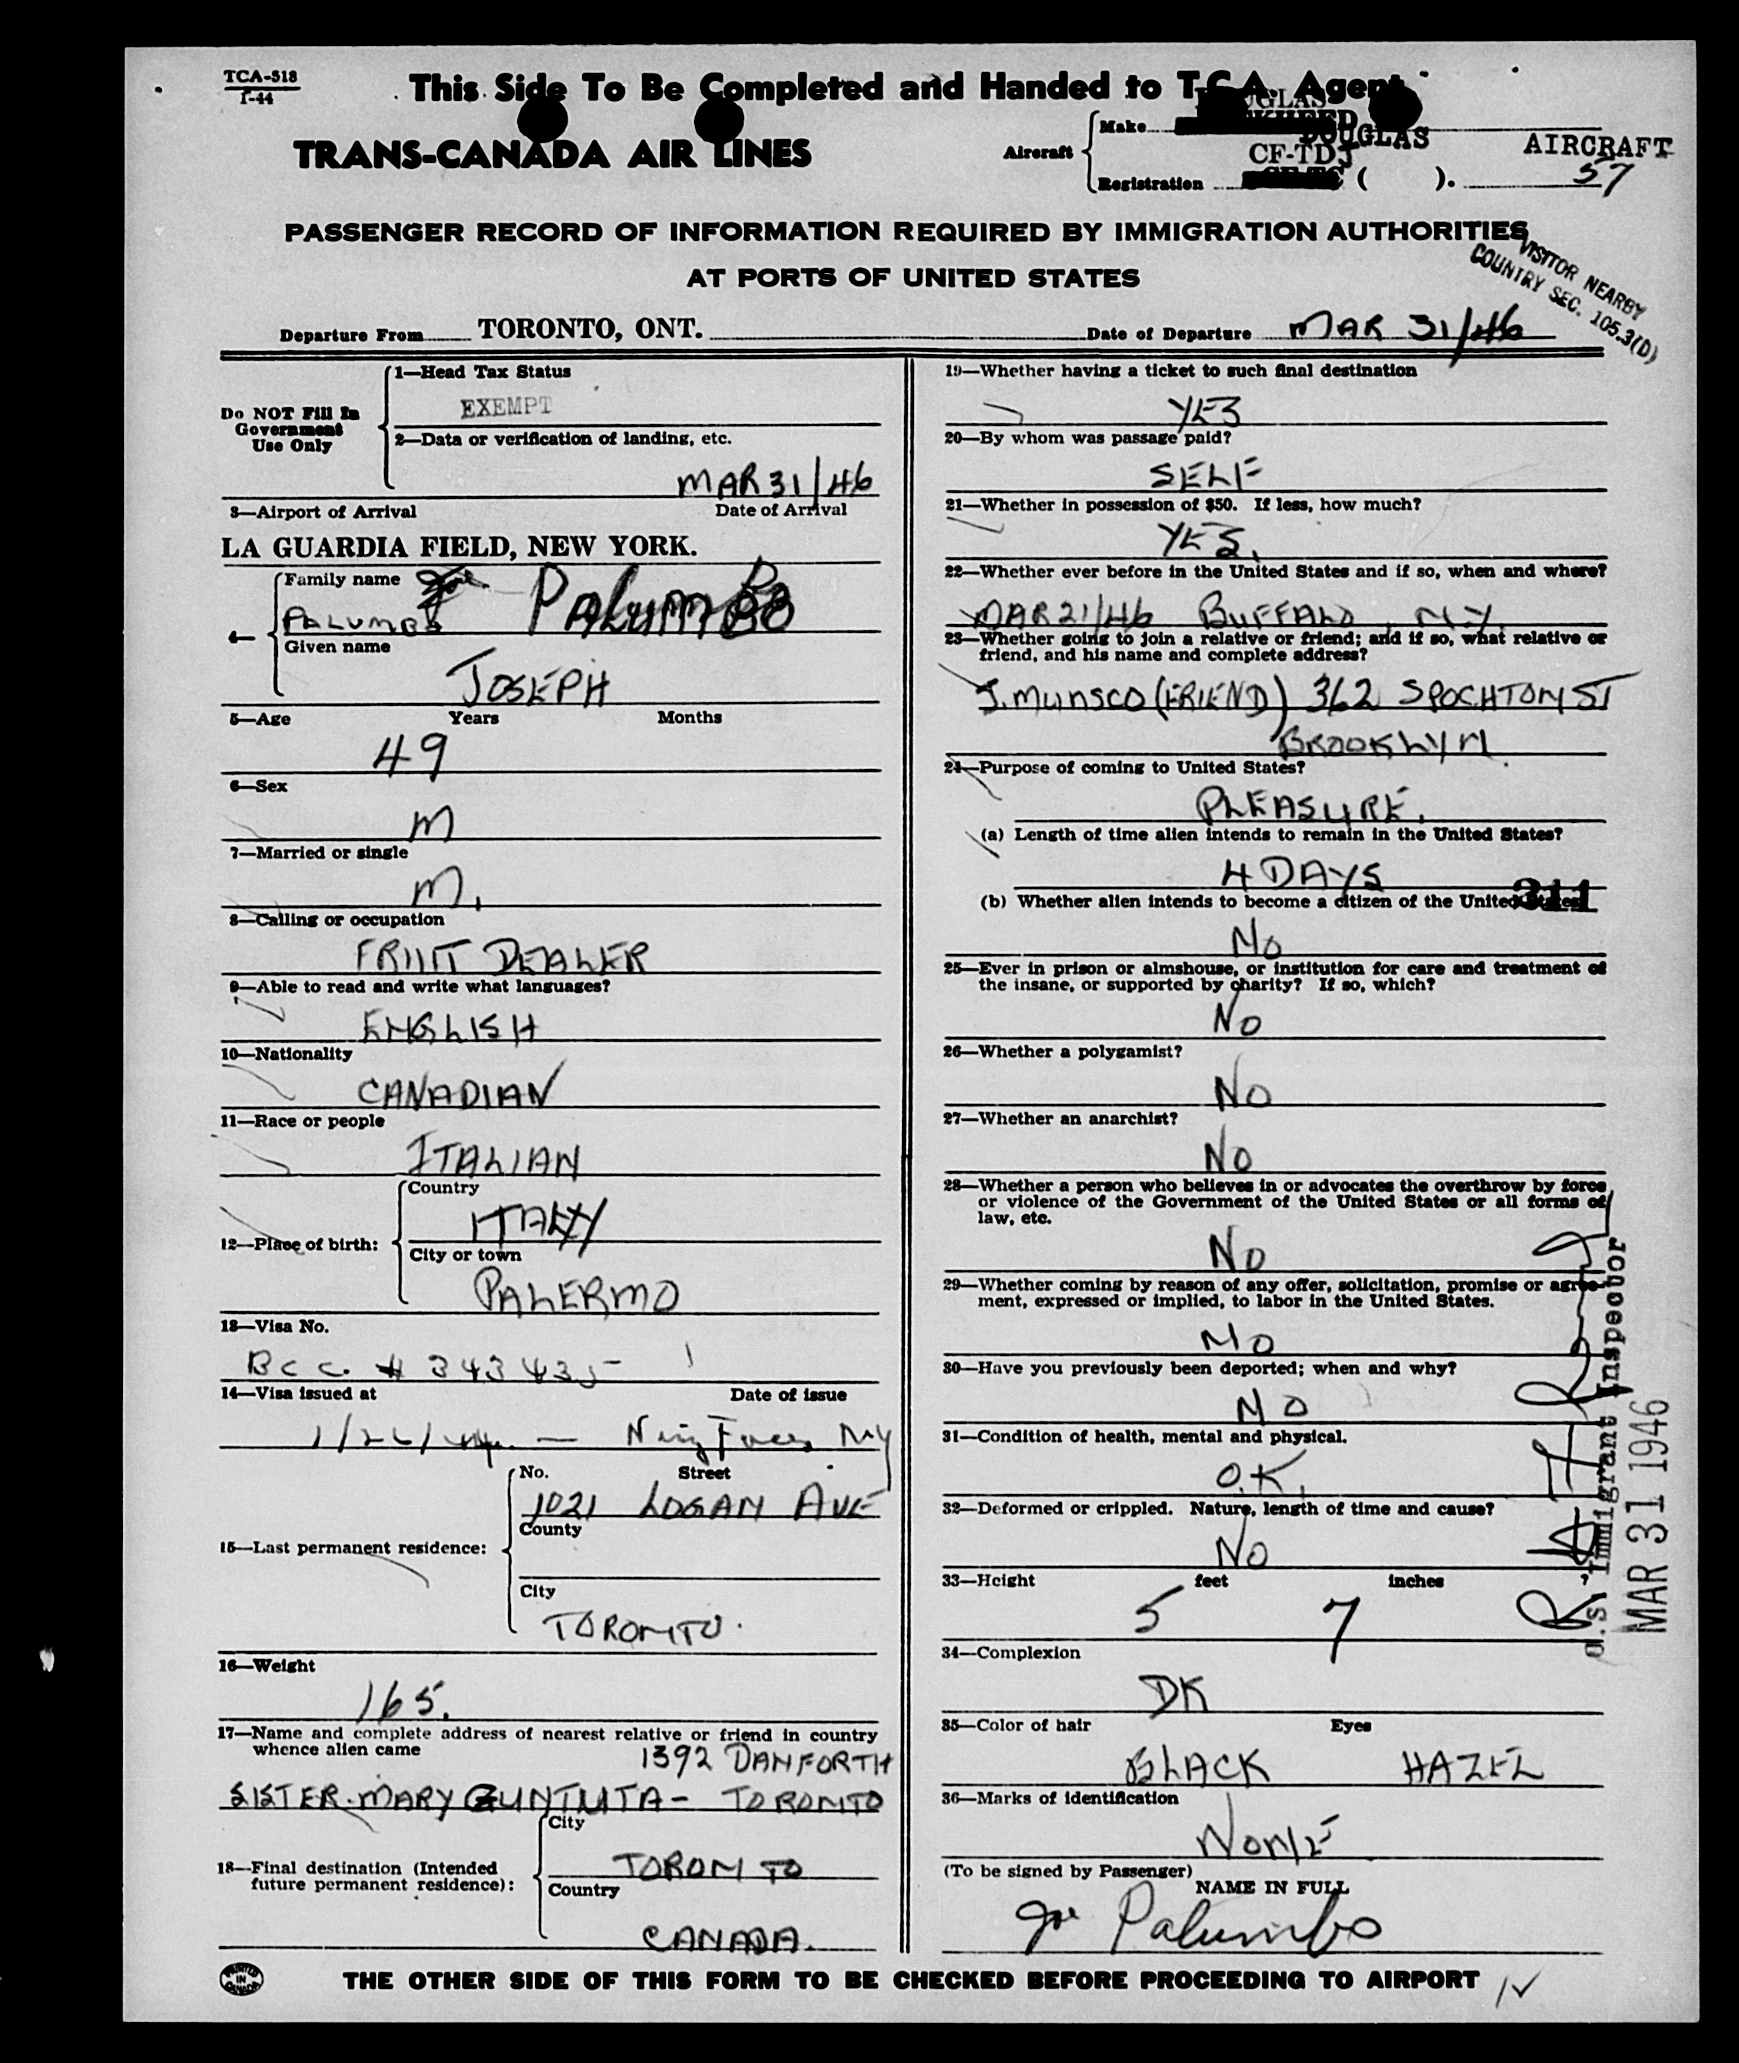 TCA-518
1-44
This Side To Be Completed and Handed to T.C.A. Agent
TRANS-CANADA AIR LINES
Aircraft
Make
DOUGLAS
AIRCRAFT
CF-TDJ
Registration ( ). 57
PASSENGER RECORD OF INFORMATION REQUIRED BY IMMIGRATION AUTHORITIES
AT PORTS OF UNITED STATES
VISITOR NEARBY
COUNTRY SEC. 105.3(D)
Departure From TORONTO, ONT. Date of Departure MAR 31/46
Do NOT Fill In
Government
Use Only
1—Head Tax Status
EXEMPT
2—Data or verification of landing, etc.
MAR 31/46
3—Airport of Arrival Date of Arrival
LA GUARDIA FIELD, NEW YORK.
4—
Family name
PALUMBO PALUMBO
Given name
JOSEPH
5—Age Years Months
49
6—Sex
M
7—Married or single
M.
8—Calling or occupation
FRUIT DEALER
9—Able to read and write what languages?
ENGLISH
10—Nationality
CANADIAN
11—Race or people
ITALIAN
12—Place of birth:
Country
ITALY
City or town
PALERMO
13—Visa No.
BCC. # 343435
14—Visa issued at Date of issue
1/26/44 — NY
15—Last permanent residence:
No. Street
1021 LOGAN AVE
County
City
TORONTO.
16—Weight
165.
17—Name and complete address of nearest relative or friend in country
whence alien came
1392 DANFORTH
SISTER-MARY - TORONTO
18—Final destination (Intended
future permanent residence):
City
TORONTO
Country
CANADA.
19—Whether having a ticket to such final destination
YES
20—By whom was passage paid?
SELF
21—Whether in possession of $50. If less, how much?
YES.
22—Whether ever before in the United States and if so, when and where?
MAR 21/46 BUFFALO, NY.
23—Whether going to join a relative or friend; and if so, what relative or
friend, and his name and complete address?
J. MUNSCO (FRIEND) 362 SPOCHTOM ST
BROOKLYN.
24—Purpose of coming to United States?
PLEASURE.
(a) Length of time alien intends to remain in the United States?
4 DAYS
311
(b) Whether alien intends to become a citizen of the United States?
NO
25—Ever in prison or almshouse, or institution for care and treatment of
the insane, or supported by charity? If so, which?
NO
26—Whether a polygamist?
NO
27—Whether an anarchist?
NO
28—Whether a person who believes in or advocates the overthrow by force
or violence of the Government of the United States or all forms of
law, etc.
NO
29—Whether coming by reason of any offer, solicitation, promise or agree-
ment, expressed or implied, to labor in the United States.
NO
30—Have you previously been deported; when and why?
NO
31—Condition of health, mental and physical.
O.K.
32—Deformed or crippled. Nature, length of time and cause?
NO
33—Height feet inches
5 7
34—Complexion
DK
35—Color of hair Eyes
BLACK HAZEL
36—Marks of identification
NONE
(To be signed by Passenger)
NAME IN FULL
Joe Palumbo
U.S. Immigrant Inspector
MAR 31 1946
PRINTED
IN
CANADA
THE OTHER SIDE OF THIS FORM TO BE CHECKED BEFORE PROCEEDING TO AIRPORT